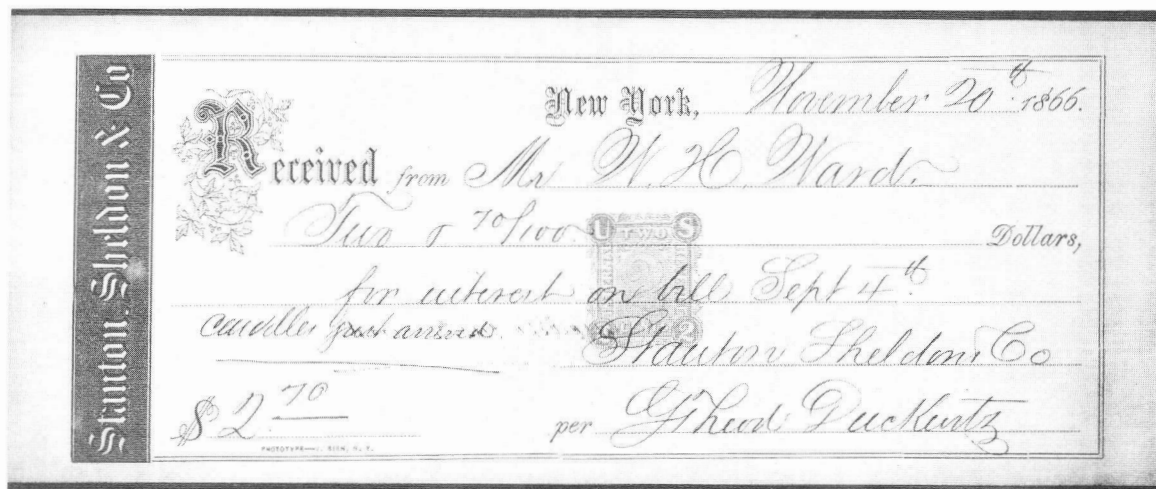 Stanton, Sheldon & Co
New York, November 20th 1866.
Received from Mr W. H. Ward
Two & 70/100 Dollars,
U TWO S
for interest on bill Sept 4th
just arrived
2
Stanton Sheldon & Co
$ 2 70
per
PHOTOTYPE